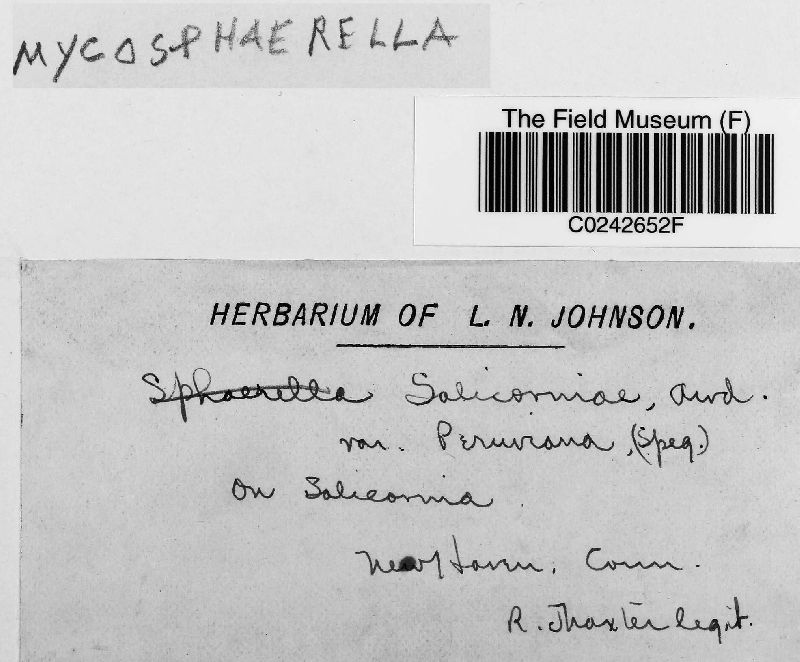 MYCOSPHAERELLA
The Field Museum (F)
C0242652F
HERBARIUM OF L. N. JOHNSON.
Sphaerella Salicorniae, Awd.
var. Peruviana, (Speg.)
On Salicornia.
New Haven, Conn.
R. Thaxter legit.